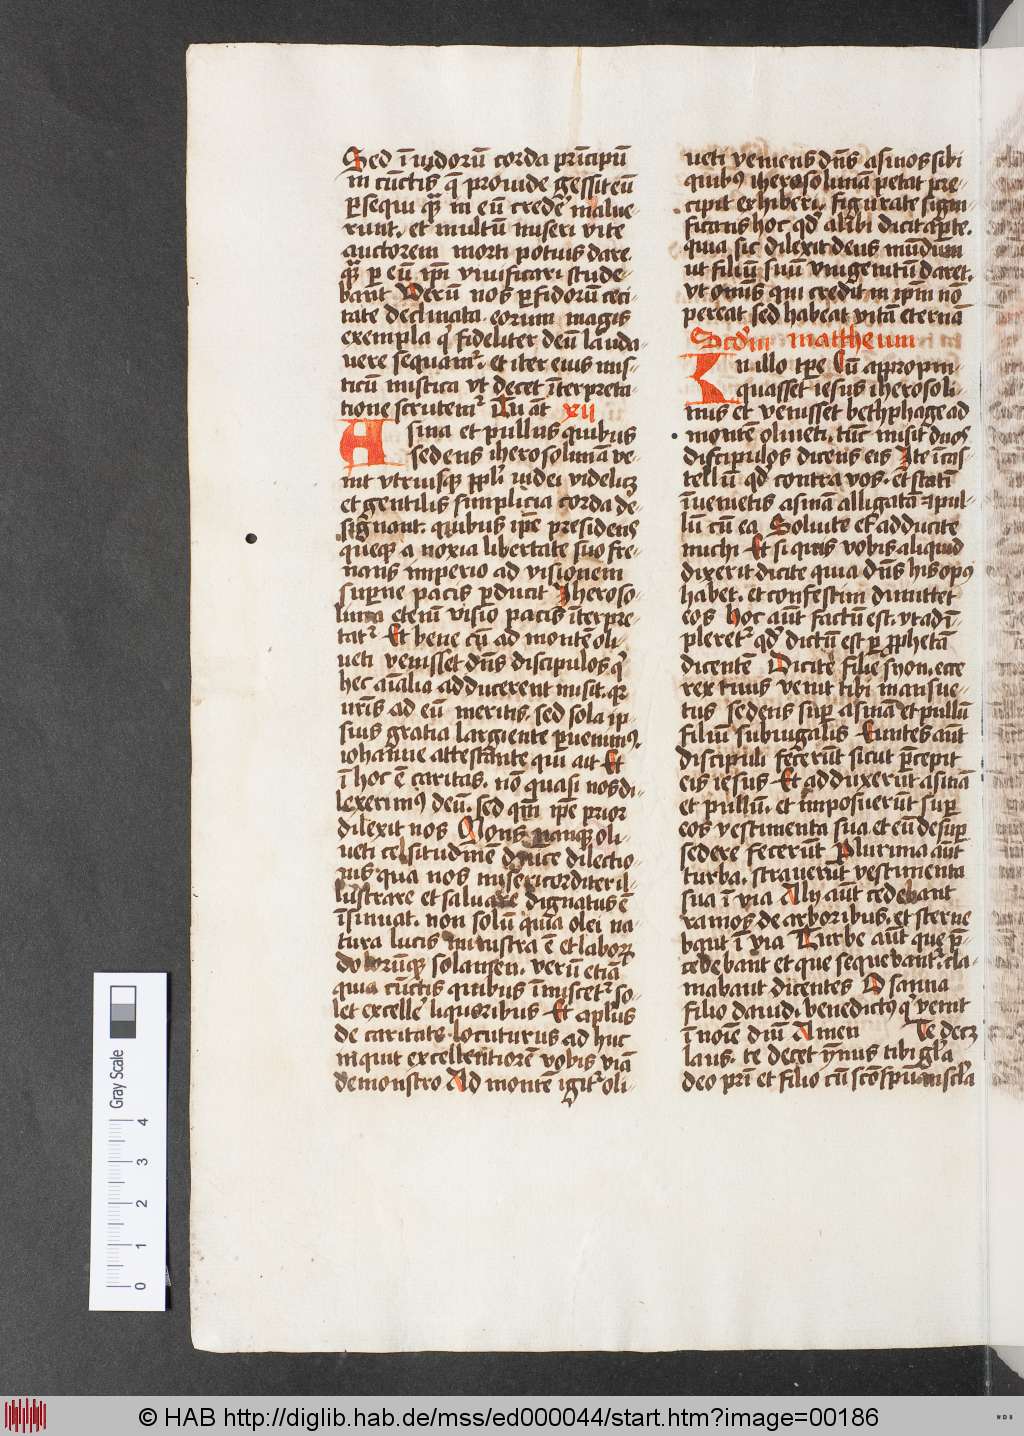 Sed ī iudorū corda prīcipū
in cūctis q̄ prouide gessit eū
ꝑsequi quā in eū credē malue-
runt, et multū miseri vite
auctorem morti potuis dare
quā ꝑ eū ip̄i viuificari stude-
bant Verū nos ꝑfidorū ceci-
tate declinata eorum magis
exempla q' fideliter deū lauda-
uere sequamr̄. et iter eius mis-
ticū mistica vt decet īterpreta-
tione scrutemr̄ Tu aūt xii
Asina et pullus quibus
sedens iherosolimā ve-
nit vtriusqꝫ ppl'i iudei videlicꝫ
et gentilis simplicia corda de-
signant. quibus ip̄e presidens
queqꝫ a noxia libertate suo fre-
nans imperio ad visionem
superne pacis ꝑducit Iheroso-
lima etenī visio pacis īterpre-
tatr̄ Et bene cū ad montē oli-
ueti venisset dn̄s discipulos q'
hec aīalia adducerent misit. qꝛ
nr̄is ad eū meritis. sed sola ip-
sius gratia largiente ꝑuenimꝰ.
iohanne attestante qui ait Et
ī hoc ē caritas. nō quasi nos di-
lexerimꝰ deū. sed qm̄ ip̄e prior
dilexit nos Mons namqꝫ oli-
ueti celsitudinē diuice dilectio-
nis qua nos misericorditer il-
lustrare et saluare dignatus ē
īsinuat. non solū quia olei na
tura lucis ministra ē et laborꝝ
dolorūqꝫ solamen. verū etiā
quia cūctis quibus īmiscetr̄ so-
let excelle' liquoribus Et aplūs
de caritate locuturus ad huc
inquit excellentiorē vobis viā
demonstro Ad montē igitr̄ oli-
ueti veniens dn̄s asinos sibi
quibꝰ iherosolimā petat pre-
cipit exhiberi. figurate signi-
ficans hoc qd' alibi dicit aꝑte.
quia sic dilexit deus mūdum
ut filiū suū vnigenitū daret.
vt omīs qui credit in ip̄m nō
pereat sed habeat vitā eternā
Scd'm mattheum
In illo tp̄e Cū appropin-
quasset iesus iherosoli-
mis et venisset bethphage ad
montē oliueti. tūc misit duos
discipulos dicens eis Ite ī cas-
tellū qd' contra vos. est statī
īuenietis asinā alligatā ⁊ pul-
lū cū ea Soluite et adducite
michi Et si quis vobis aliquid
dixerit dicite quia dn̄s his opꝰ
habet. et confestim dimittet
eos Hoc aūt factū est. vt ad ī-
pleretr̄ qd' dictū est ꝑ ꝓphetā
dicentē Dicite filie syon. ecce
rex tuus venit tibi mansue-
tus sedens suꝑ asinā et pullū
filiū subiugalis Euntes aūt
discipuli fecerūt sicut p̄cepit
eis iesus Et adduxerūt asinā
et pullū. et īmposuerūt suꝑ
eos vestimenta sua et eū desuꝑ
sedere fecerūt Plurima aūt
turba. strauerūt vestimenta
sua ī via Alij aūt cedebant
ramos de arboribus. et sterne
bāt ī via Turbe aūt que p̄-
cedebant et que sequebantr̄. cla-
mabant dicentes Osanna
filio dauid. benedictꝰ q' venit
ī noīe dm̄i Amen Te decꝫ
laus. te decet ymnus tibi gl'a
deo pr̄i et filio cū scō sp̄u in scl'a
Gray Scale
4
3
2
1
0
© HAB http://diglib.hab.de/mss/ed000044/start.htm?image=00186